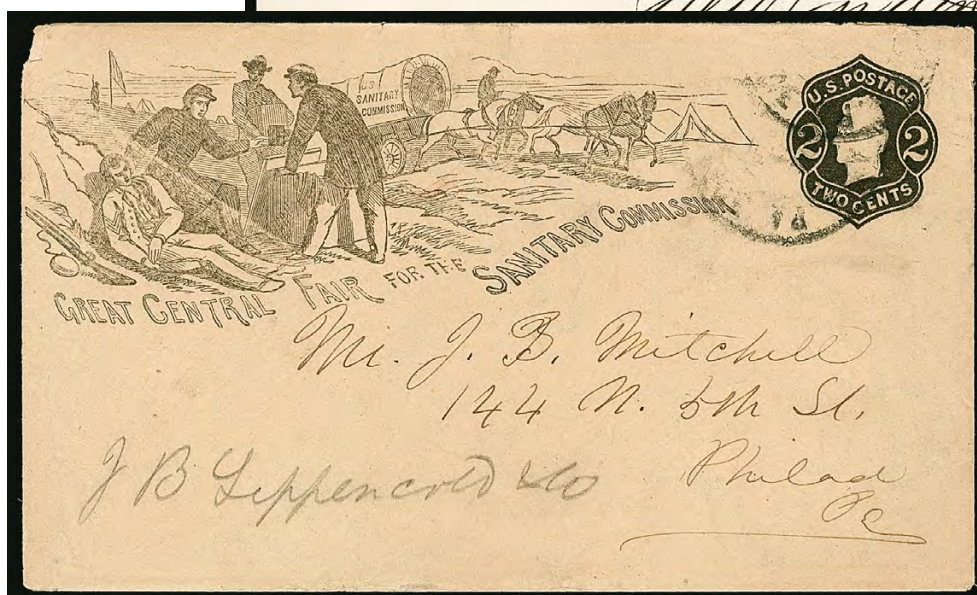 U.S.
SANITARY
COMMISSION
U.S. POSTAGE
2 2
TWO CENTS
GREAT CENTRAL FAIR FOR THE SANITARY COMMISSION
Mr. J. B. Mitchell
144 N. 5th St.
Philad
Pa
J B Lippencold & Co